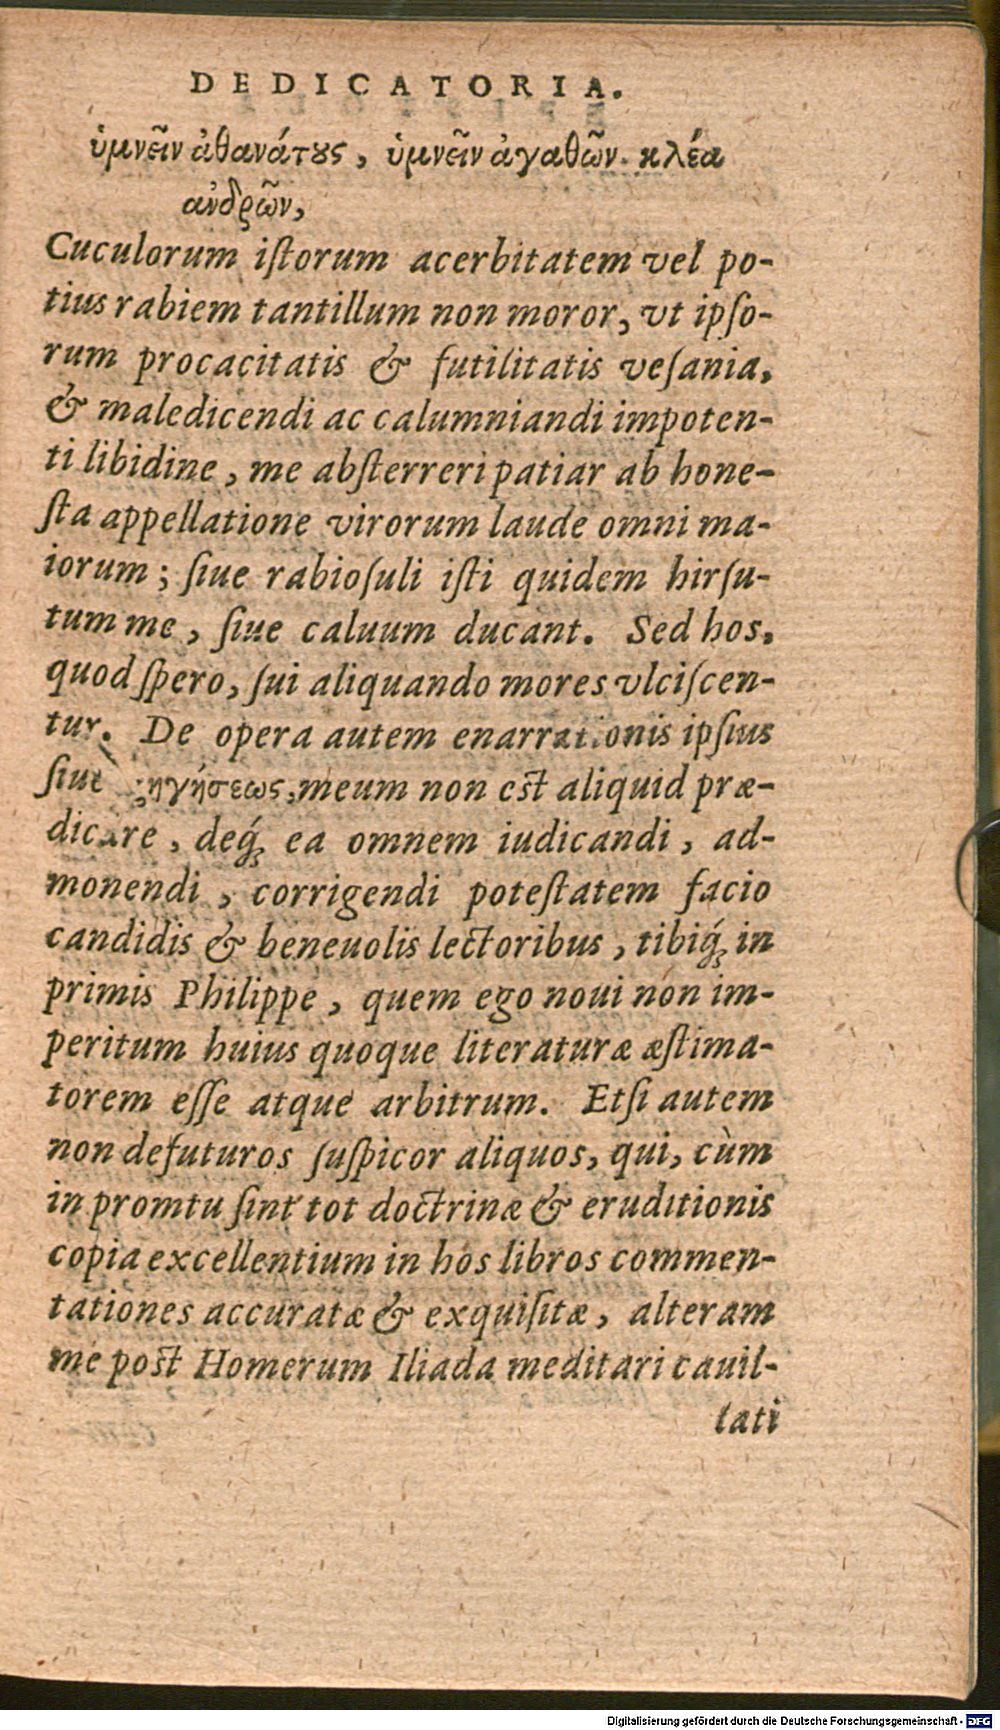 DEDICATORIA.
ὑμνεῖν ἀθανάτους, ὑμνεῖν ἀγαθῶν κλέα
ἀνδρῶν,
Cuculorum iſtorum acerbitatem vel po-
tius rabiem tantillum non moror, vt ipſo-
rum procacitatis & futilitatis veſania,
& maledicendi ac calumniandi impoten-
ti libidine, me abſterreri patiar ab hone-
ſta appellatione virorum laude omni ma-
iorum; ſiue rabioſuli iſti quidem hirſu-
tum me, ſiue caluum ducant. Sed hos,
quod ſpero, ſui aliquando mores vlciſcen-
tur. De opera autem enarrationis ipſius
ſiue ἐξηγήσεως, meum non eſt aliquid præ-
dicare, deq́; ea omnem iudicandi, ad-
monendi, corrigendi poteſtatem facio
candidis & beneuolis lectoribus, tibiq́; in
primis Philippe, quem ego noui non im-
peritum huius quoque literaturæ æſtima-
torem eſſe atque arbitrum. Etſi autem
non defuturos ſuſpicor aliquos, qui, cùm
in promtu ſint tot doctrinæ & eruditionis
copia excellentium in hos libros commen-
tationes accuratæ & exquiſitæ, alteram
me poſt Homerum Iliada meditari cauil-
lati
Digitalisierung gefördert durch die Deutsche Forschungsgemeinschaft - DFG